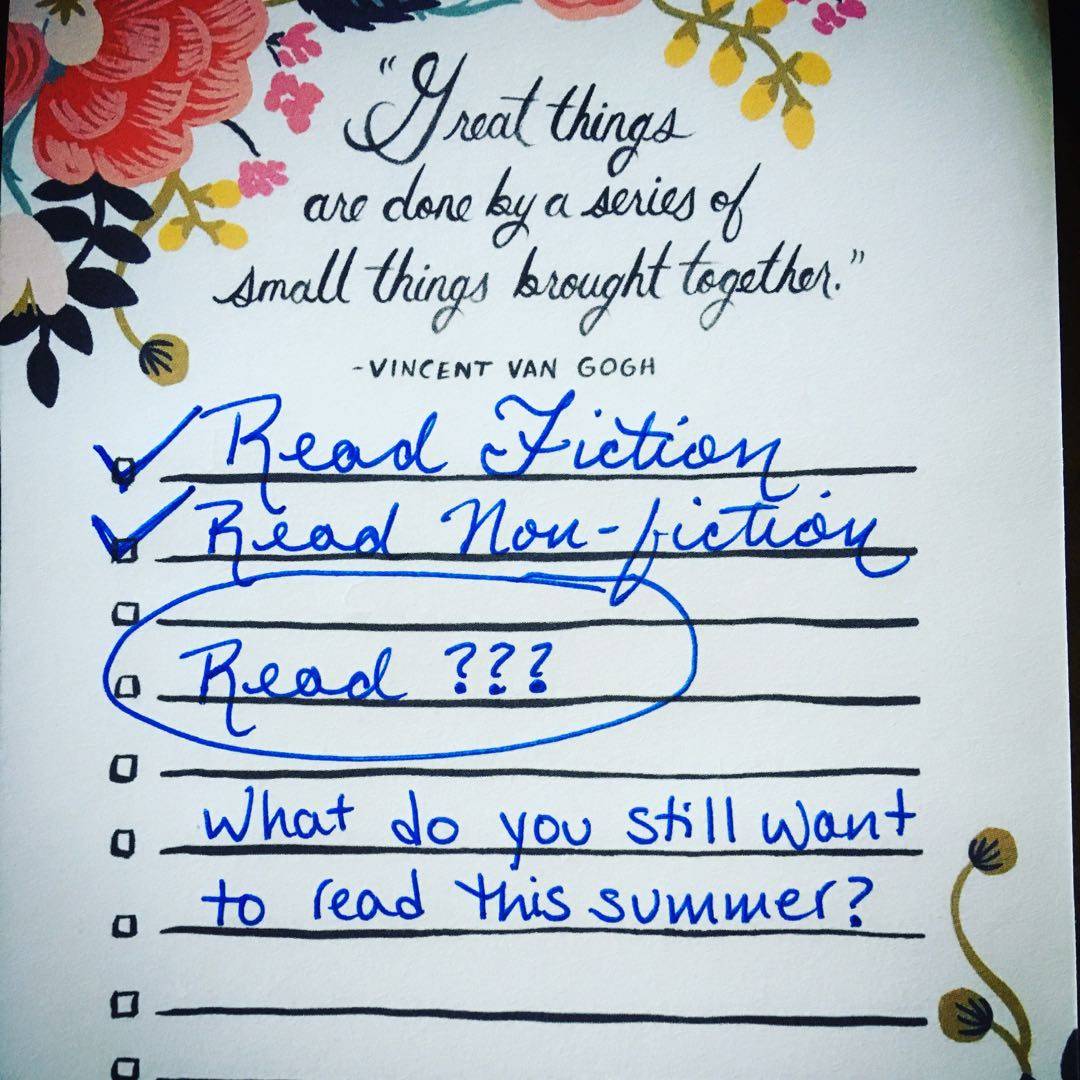 “Great things
are done by a series of
small things brought together.”
-VINCENT VAN GOGH
Read Fiction
Read Non-fiction
Read ???
What do you still want
to read this summer?